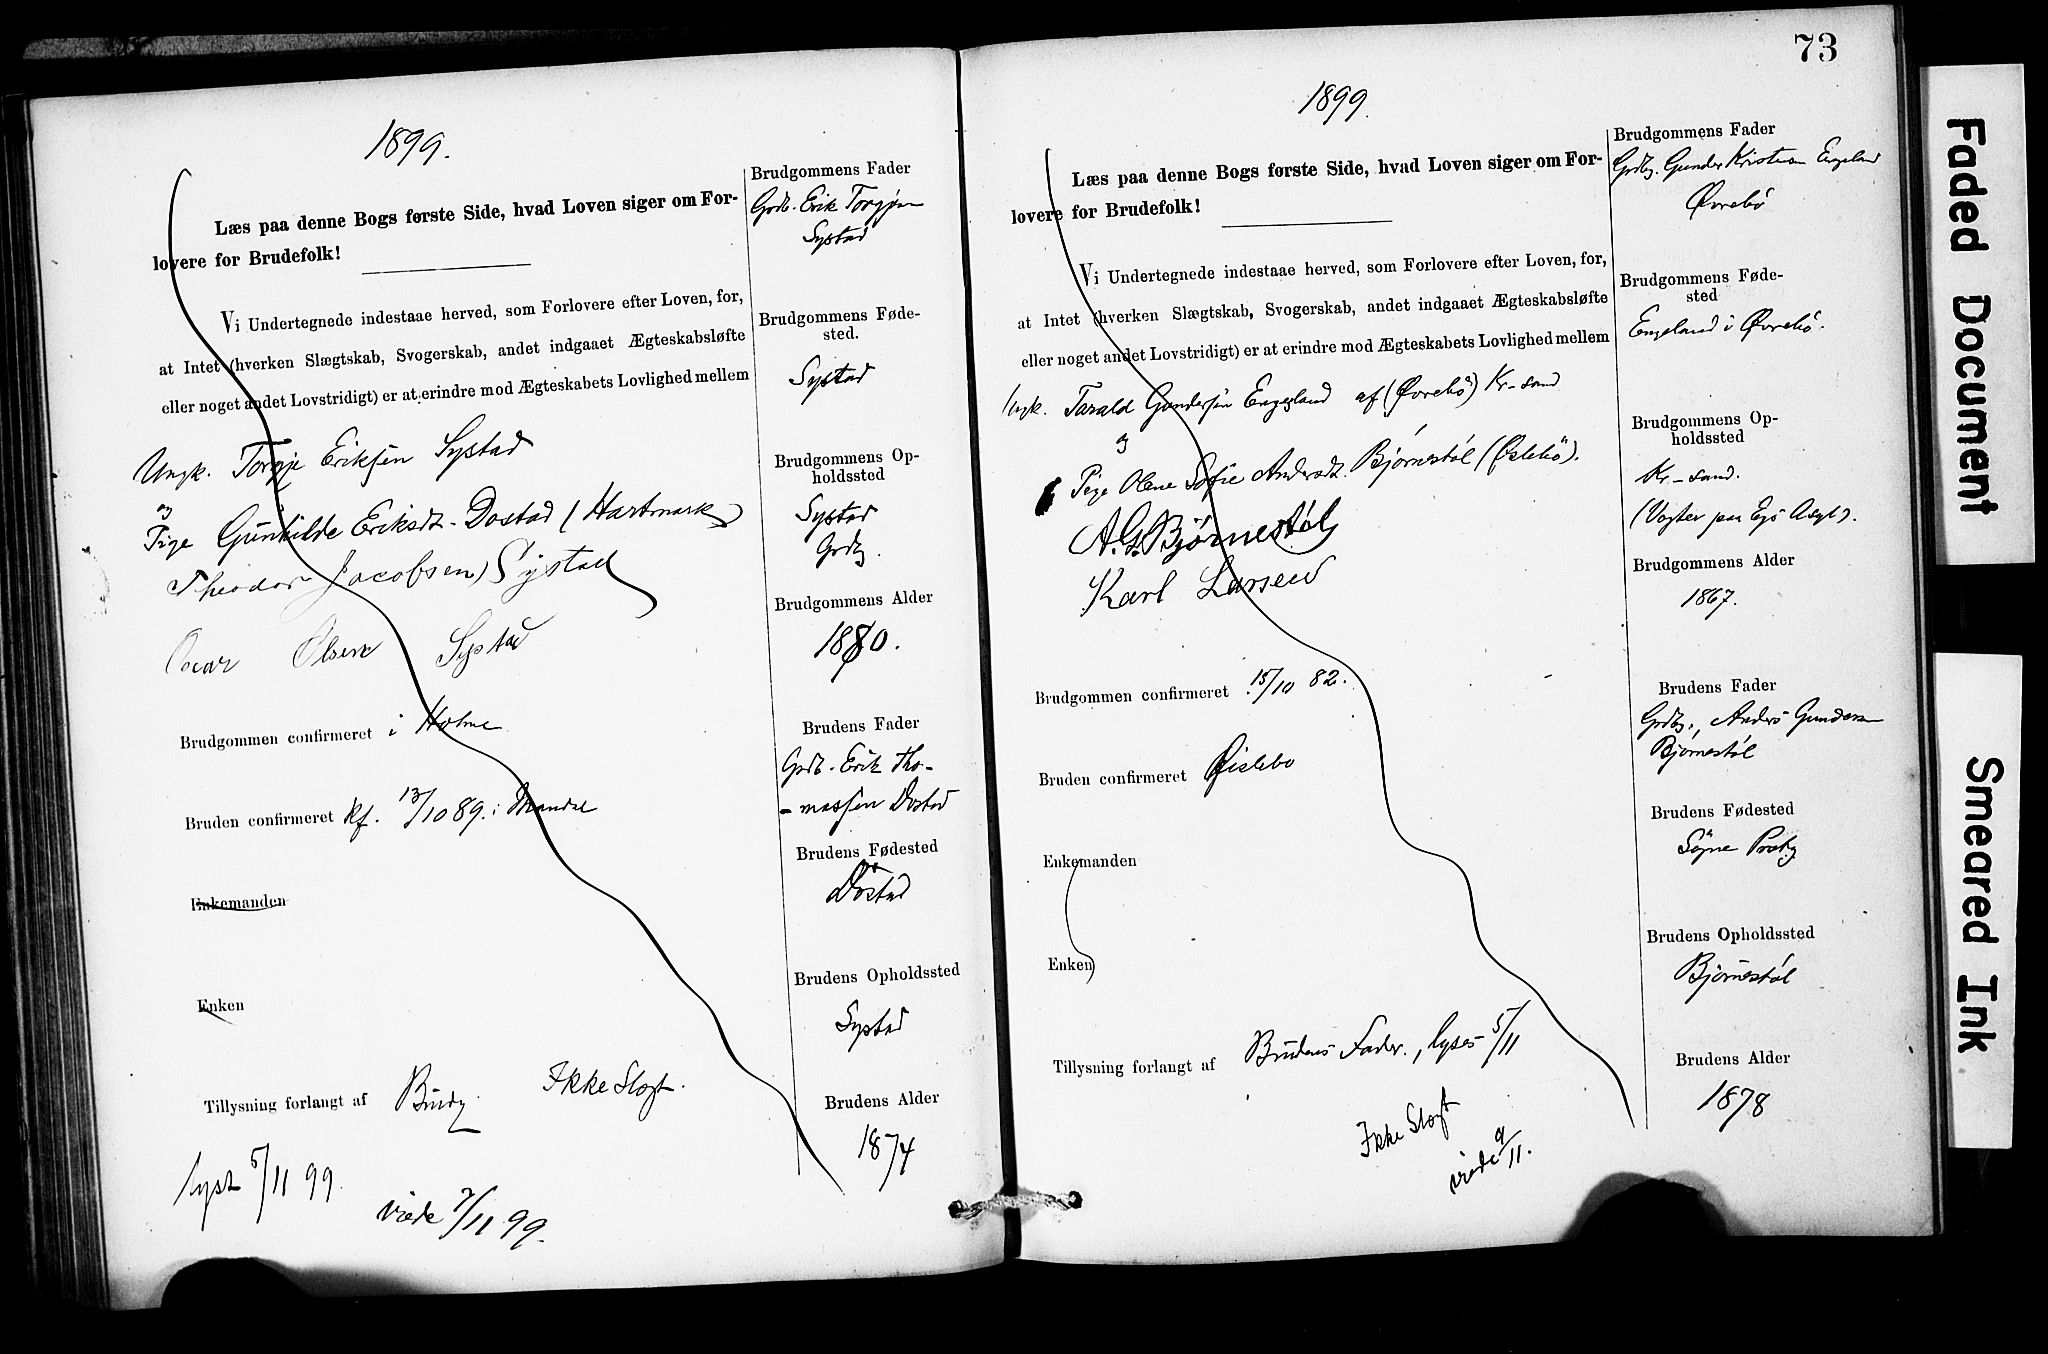 1899.
Læs paa denne Bogs første Side, hvad Loven siger om For-
lovere for Brudefolk!
Vi Undertegnede indestaae herved, som Forlovere efter Loven, for,
at Intet (hverken Slægtskab, Svogerskab, andet indgaaet Ægteskabsløfte
eller noget andet Lovstridigt) er at erindre mod Ægteskabets Lovlighed mellem
Ungk. Torgje Eriksen Systad
og
Pige Gunhilde Eriksdt. Dostad (Hartmark)
Theodor Jacobsen Systad
Oscar Olsen Systad
Brudgommen confirmeret i Holme
Bruden confirmeret Kf. 13/10 89. i Mandal
Enkemanden
Enken
Tillysning forlangt af Brudg. Ikke Slægt.
lyst 5/11 99.
viede 7/11 99.
Brudgommens Fader
Grdb. Erik Torgjsen
Systad
Brudgommens Føde-
sted.
Systad
Brudgommens Op-
holdssted
Systad
Grdbg.
Brudgommens Alder
1870.
Brudens Fader
Grdb. Erik Tho-
-massen Dostad
Brudens Fødested
Døstad
Brudens Opholdssted
Systad
Brudens Alder
1874
73
1899.
Læs paa denne Bogs første Side, hvad Loven siger om For-
lovere for Brudefolk!
Vi Undertegnede indestaae herved, som Forlovere efter Loven, for,
at Intet (hverken Slægtskab, Svogerskab, andet indgaaet Ægteskabsløfte
eller noget andet Lovstridigt) er at erindre mod Ægteskabets Lovlighed mellem
Ungk. Tarald Gundersen Engeland af (Øvrebö) Kr-sand
og
Pige Olene Sofie Andersdt. Bjørnestøl (Øslebö).
A. G. Bjørnestøl
Karl Larsen
Brudgommen confirmeret 15/10 82.
Bruden confirmeret Øislebo
Enkemanden
Enken
Tillysning forlangt af Brudens Fader., lyses 5/11
Ikke Slægt
viede 9/11.
Brudgommens Fader
Grdbg. Gunder Kristian Engeland
Øvrebö
Brudgommens Føde-
sted
Engeland i Øvrebö.
Brudgommens Op-
holdssted
Kr-sand.
(Vogter paa Egs Asyl).
Brudgommens Alder
1867.
Brudens Fader
Grdbg., Anders Gundersen
Bjørnestøl
Brudens Fødested
Søgne Præstg
Brudens Opholdssted
Bjørnestøl
Brudens Alder
1878
Faded Document
Smeared Ink